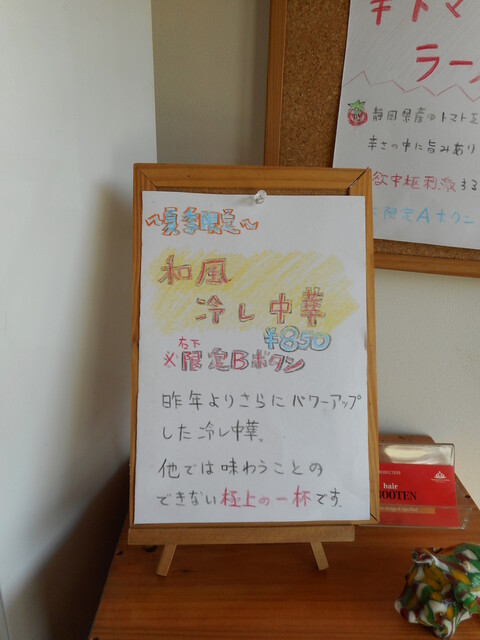 ～夏季限定～
和風
冷し中華
¥850
右下
※限定Bボタン
昨年よりさらにパワーアップ
した冷し中華。
他では味わうことの
できない極上の一杯です。
辛トマ
ラー
静岡県産のトマト
辛さの中に旨みあり
限定Aボタン
hair